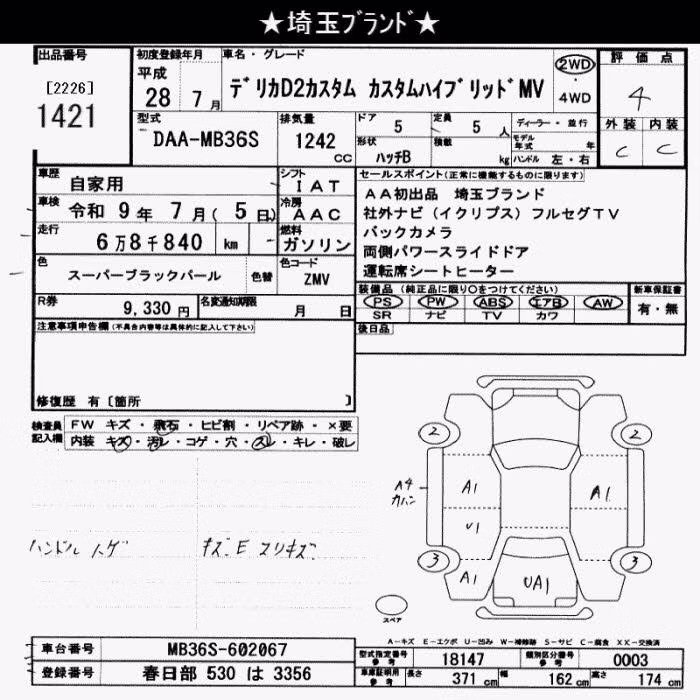 ★埼玉ﾌﾞﾗﾝﾄﾞ★
出品番号
[2226]
1421
初度登録年月
平成
28 7 月
車名・グレード
デリカD2カスタム カスタムハイブリッドMV
2WD
・
4WD
評価点
4
外装 内装
C C
型式
DAA-MB36S
排気量
1242
cc
ドア 5
定員 5 人
ディーラー・並行
形状
ハッチB
積載 kg
モデル年式 年
ハンドル 左・右
車歴 自家用
シフト IAT
車検 令和 9年 7月( 5日)
冷房 AAC
走行 6万8千840 km
燃料 ガソリン
色 スーパーブラックパール
色替
色コード ZMV
R券 9,330円
名変通知期限 月 日
セールスポイント(正常に機能するものに限ります)
AA初出品 埼玉ブランド
社外ナビ(イクリプス)フルセグTV
バックカメラ
両側パワースライドドア
運転席シートヒーター
装備品(純正品に限り○をつけてください)
PS PW ABS エアB AW
SR ナビ TV カワ
新車保証書
有・無
後日品
注意事項申告欄(不具合内容等は具体的に記入して下さい)
修復歴 有〔箇所 〕
検査員
記入欄
FW キズ・飛石・ヒビ割・リペア跡・×要
内装 キズ・汚レ・コゲ・穴・スレ・キレ・破レ
ハンドル ハゲ
キズ E スリキズ
2 2
A4
A1 A1
U1
3 3
A1 UA1
スペア
A-キズ E-エクボ U-凹み W-補修跡 S-サビ C-腐食 XX-交換済
車台番号 MB36S-602067
登録番号 春日部 530 は 3356
型式指定番号
参考
18147
類別区分番号
参考
0003
車庫証明用
参考
長さ 371 cm
幅 162 cm
高さ 174 cm